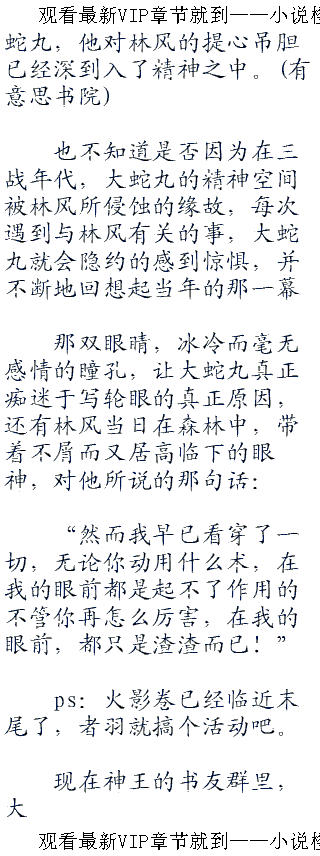 观看最新VIP章节就到——小说
蛇丸，他对林风的提心吊胆
已经深到入了精神之中。(有
意思书院)
也不知道是否因为在三
战年代，大蛇丸的精神空间
被林风所侵蚀的缘故，每次
遇到与林风有关的事，大蛇
丸就会隐约的感到惊惧，并
不断地回想起当年的那一幕
那双眼睛，冰冷而毫无
感情的瞳孔，让大蛇丸真正
痴迷于写轮眼的真正原因，
还有林风当日在森林中，带
着不屑而又居高临下的眼
神，对他所说的那句话：
“然而我早已看穿了一
切，无论你动用什么术，在
我的眼前都是起不了作用的
不管你再怎么厉害，在我的
眼前，都只是渣渣而已！”
ps：火影卷已经临近末
尾了，者羽就搞个活动吧。
现在神王的书友群里，
大
观看最新VIP章节就到——小说